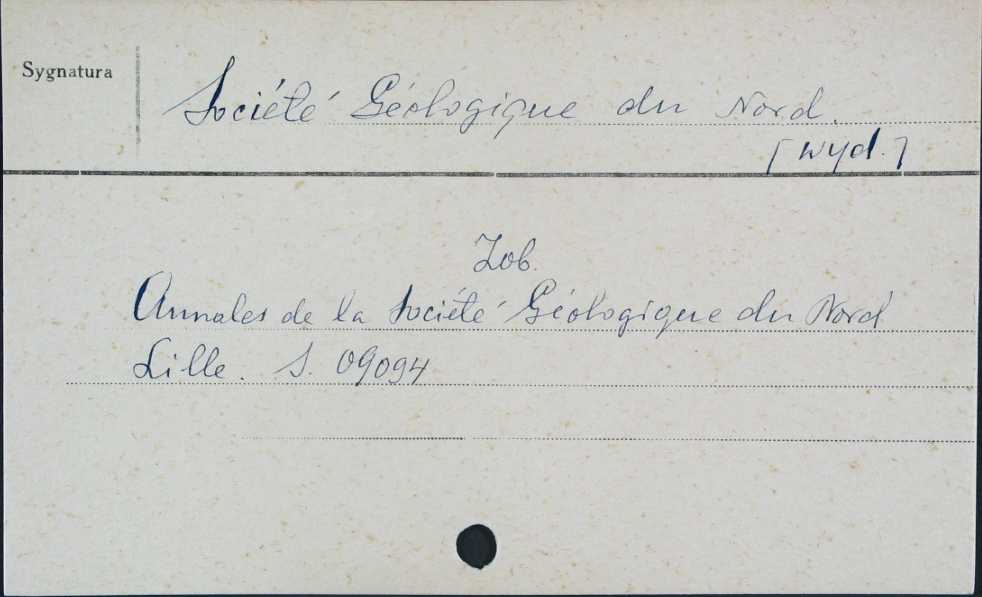 Sygnatura
Société Géologique du Nord.
[wyd.]
Zob.
Annales de la Société Géologique du Nord
Lille. S. 09094